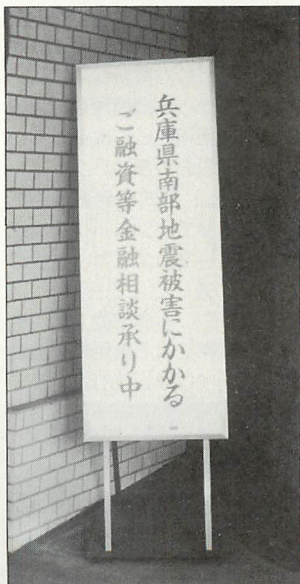 兵庫県南部地震被害にかかる
ご融資等金融相談承り中